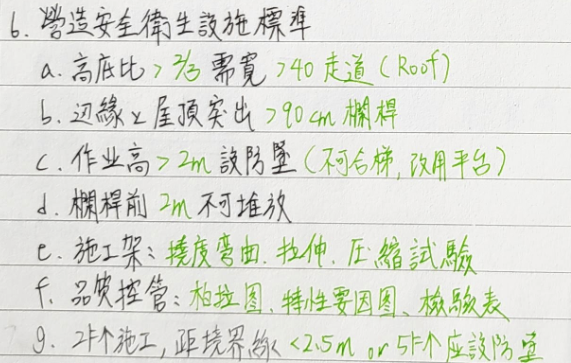 6. 營造安全衛生設施標準
a. 高底比 > 2/3 需寬 >40 走道 (Roof)
b. 边緣 & 屋頂突出 >90cm 欄桿
c. 作业高 > 2m 設防墜 (不可合梯, 改用平台)
d. 欄桿前 2m 不可堆放
e. 施工架: 撓度弯曲. 拉伸. 压縮試驗
f. 品質控管: 柏拉图、特性要因图、檢驗表
g. 2F个施工, 距境界線 <2.5m or 5F个应設防墜